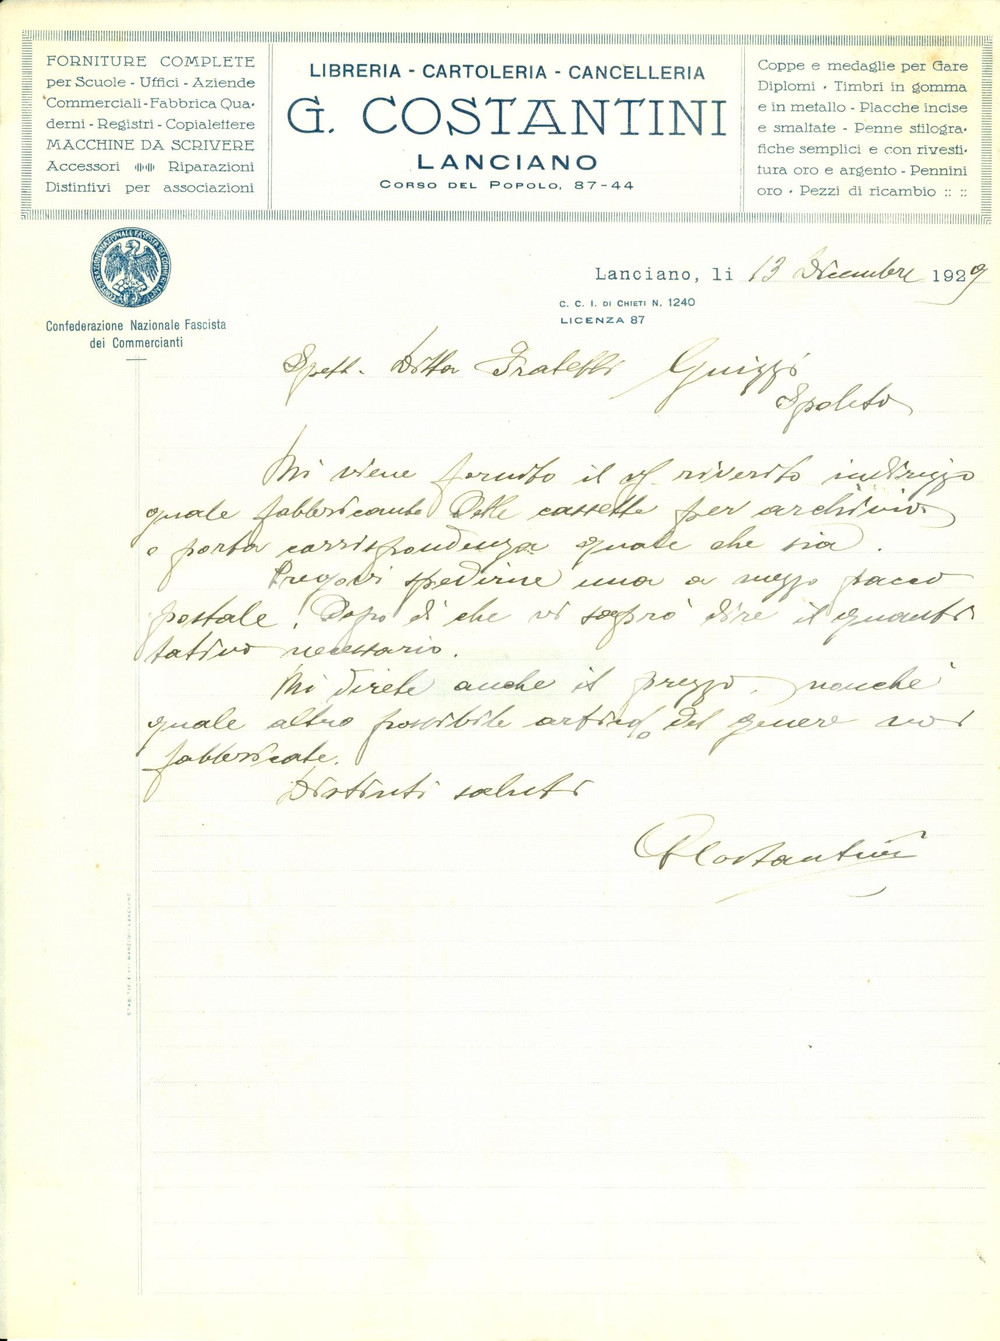 FORNITURE COMPLETE
per Scuole - Uffici - Aziende
Commerciali - Fabbrica Qua-
derni - Registri - Copialettere
MACCHINE DA SCRIVERE
Accessori Riparazioni
Distintivi per associazioni
LIBRERIA - CARTOLERIA - CANCELLERIA
G. COSTANTINI
LANCIANO
CORSO DEL POPOLO, 87-44
Coppe e medaglie per Gare
Diplomi - Timbri in gomma
e in metallo - Placche incise
e smaltate - Penne stilogra-
fiche semplici e con rivesti-
tura oro e argento - Pennini
oro - Pezzi di ricambio :: ::
Confederazione Nazionale Fascista
dei Commercianti
Lanciano, li 13 Dicembre 1929
C. C. I. DI CHIETI N. 1240
LICENZA 87
Spett. Ditta Fratelli Guizzi
Spoleto
Mi viene fornito il riverito indirizzo
quale fabbricante delle cassette per archivio
o porta corrispondenza quale che sia.
Pregovi spedirne una a mezzo pacco
postale! Dopo di che vi saprò dire il quanti
tativo necessario.
Mi direte anche il prezzo, nonché
quale altro possibile articolo del genere voi
fabbricate.
Distinti saluti
GCostantini